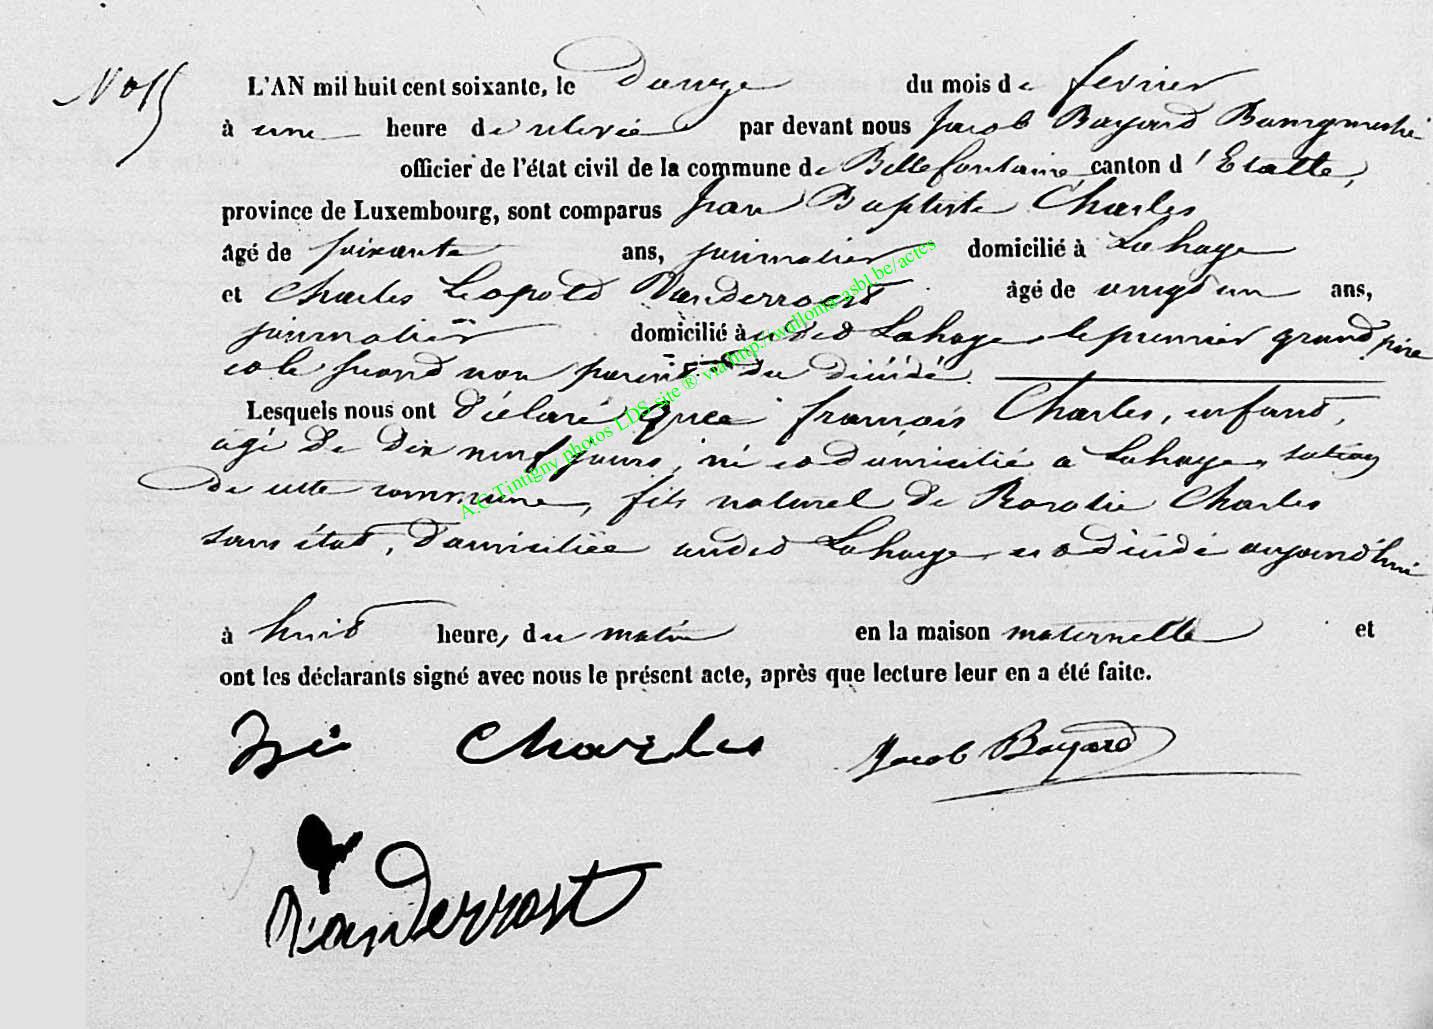 No 15
L'AN mil huit cent soixante, le douze du mois de fevrier
à une heure de relevée par devant nous Jacob Bayard Bourgmestre
officier de l'état civil de la commune de Bellefontaine canton d'Etalle,
province de Luxembourg, sont comparus Jean Baptiste Charles
âgé de soixante ans, journalier domicilié à Lahage
et Charles Léopold Vanderrost âgé de vingt un ans,
journalier domicilié à Lahage le premier grand père
et le second non parent du décédé.
Lesquels nous ont déclaré que françois Charles, enfant,
agé de dix neuf jours, né et domicilié a Lahage, section
de cette commune, fils naturel de Rosalie Charles
sans état, domiciliée audit Lahage est décédé aujourd'hui
à huit heure, du matin en la maison maternelle et
ont les déclarants signé avec nous le présent acte, après que lecture leur en a été faite.
Charles Jacob Bayard
Vanderrost
A.C. Tintigny photos LDS, site ® via http://wallonia-asbl.be/actes